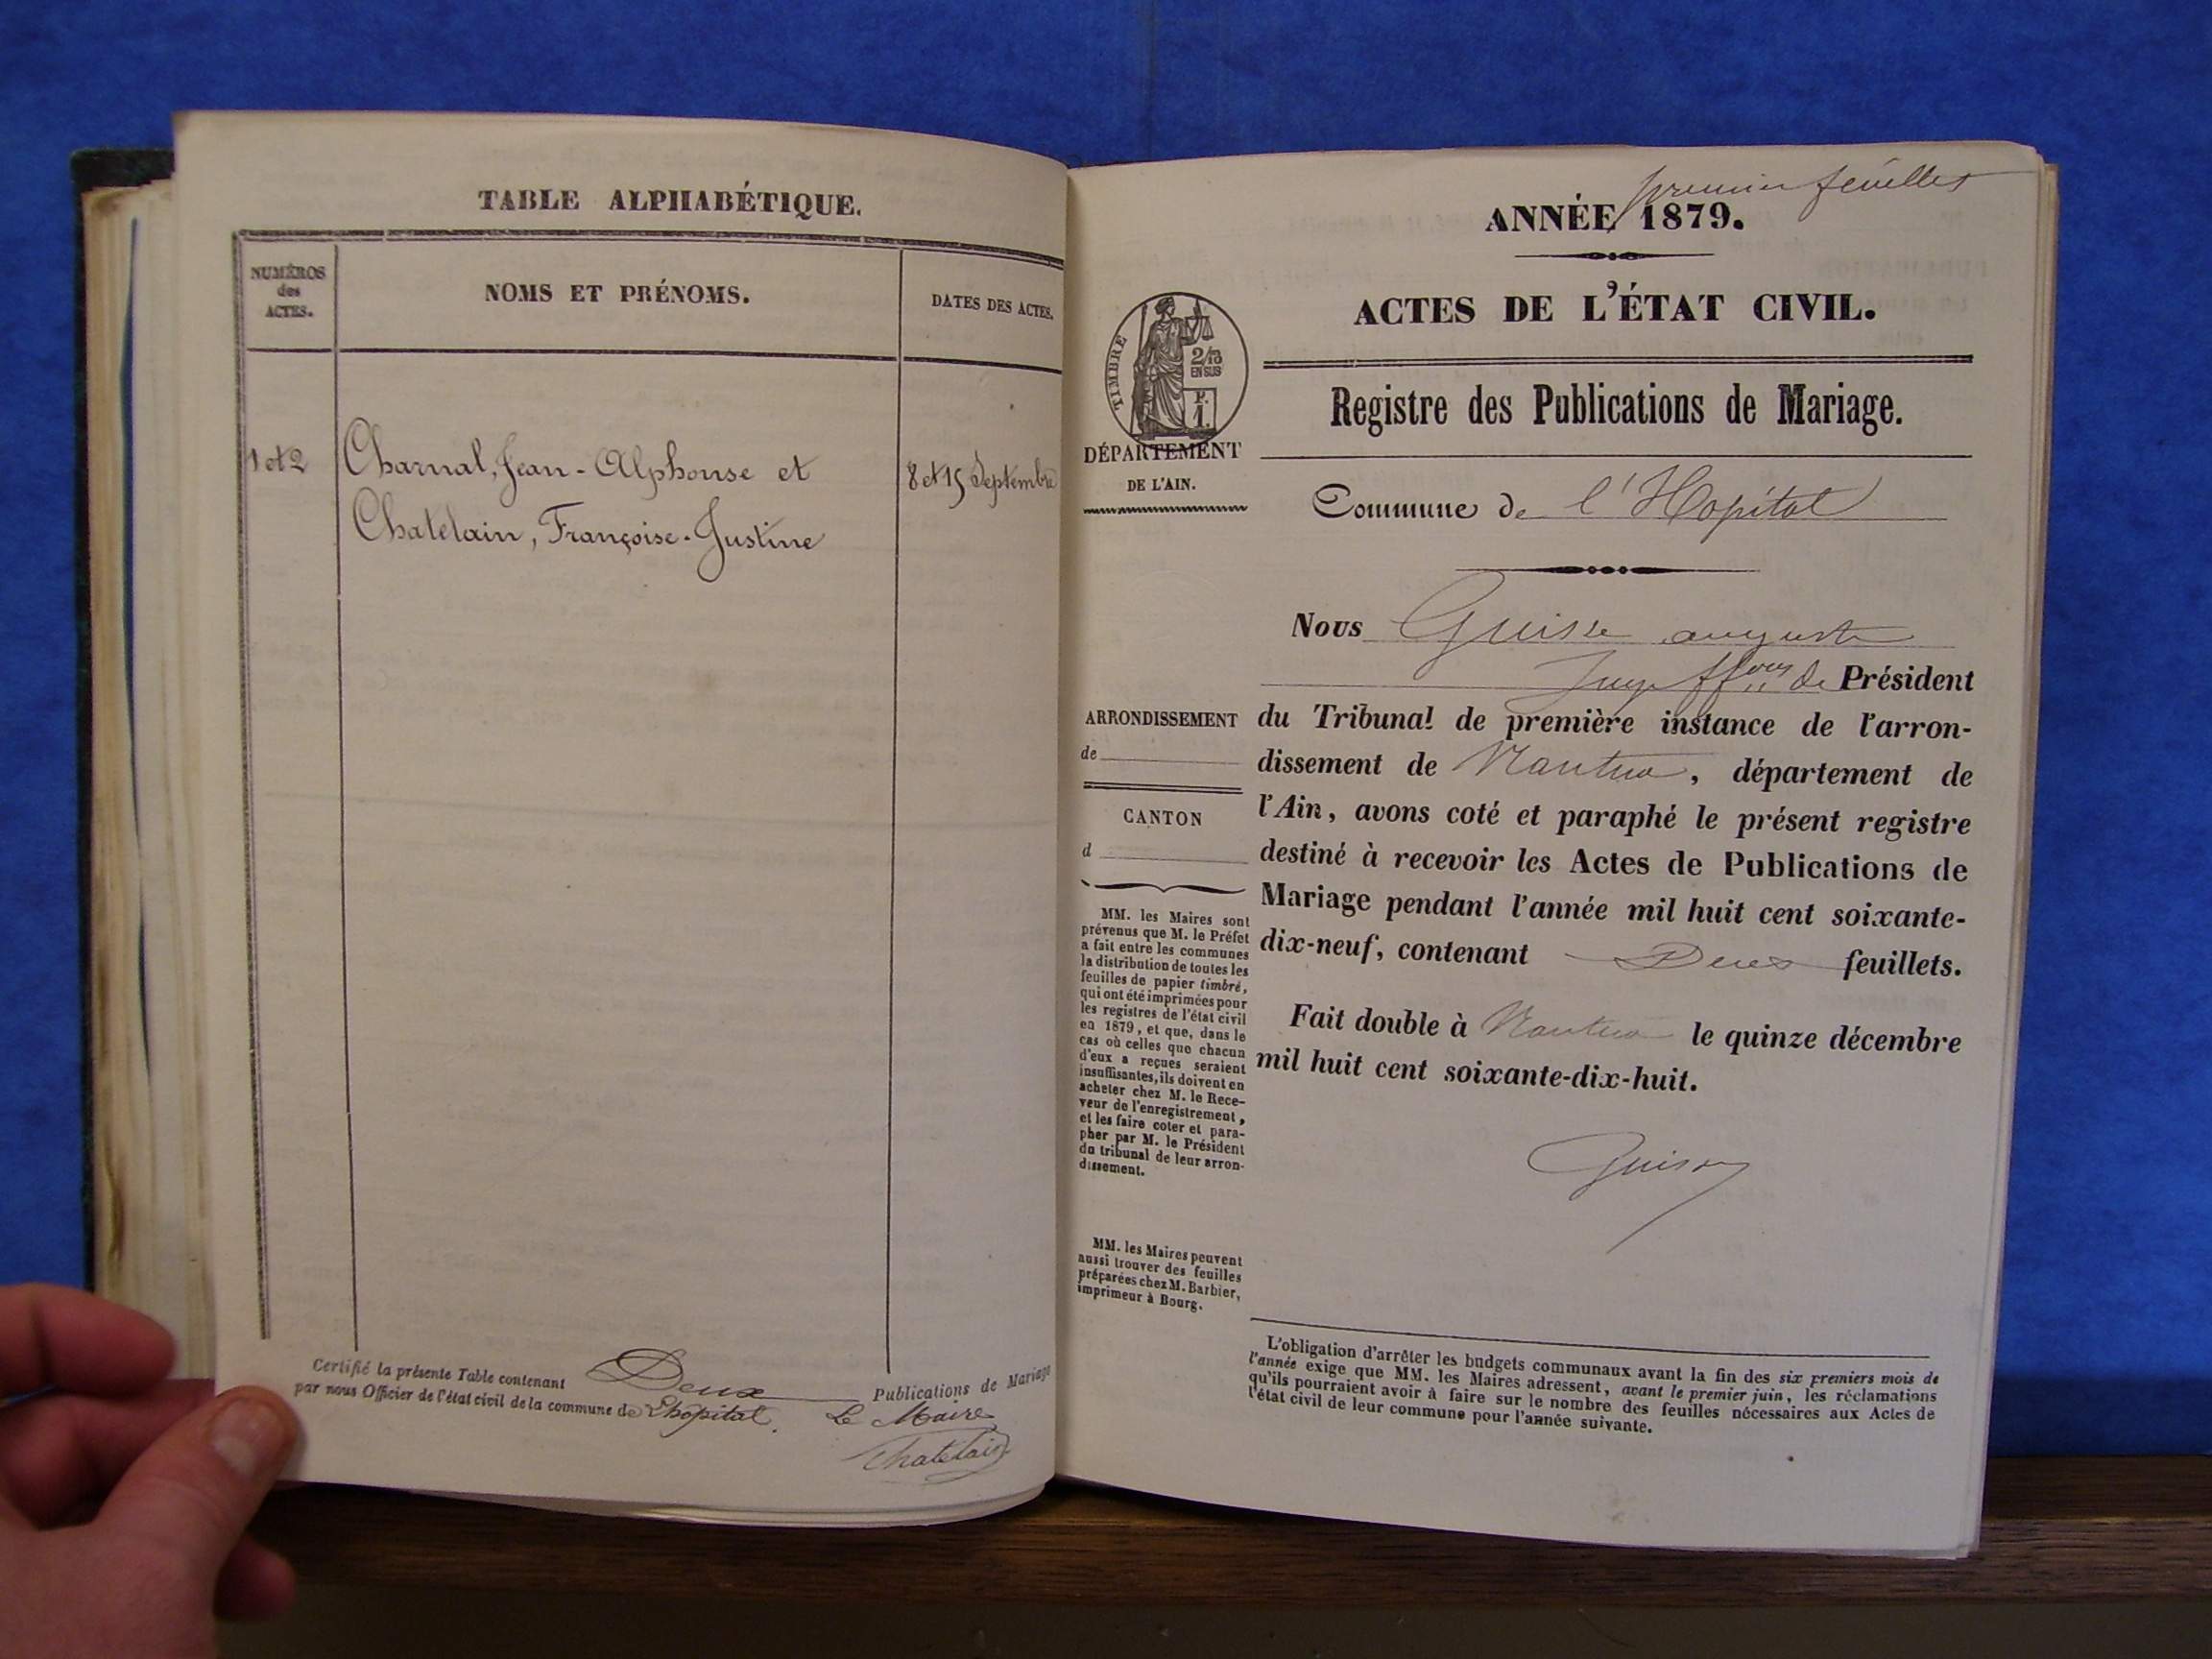 TABLE ALPHABÉTIQUE.
NUMÉROS
des
ACTES.
NOMS ET PRÉNOMS.
DATES DES ACTES.
1 et 2
Charnal, Jean-Alphonse et
Chatelain, Françoise-Justine
8 et 15 Septembre
Certifié la présente Table contenant Deux Publications de Mariage
par nous Officier de l'état civil de la commune de Lhopital.
Le Maire
Chatelain
premier feuillet
ANNÉE 1879.
ACTES DE L'ÉTAT CIVIL.
TIMBRE
2/10
EN SUS
DÉPARTEMENT
DE L'AIN.
Registre des Publications de Mariage.
Commune de l'Hopital
Nous
auguste
Juge de Président
ARRONDISSEMENT
de
CANTON
d
du Tribunal de première instance de l'arron-
dissement de Nantua, département de
l'Ain, avons coté et paraphé le présent registre
destiné à recevoir les Actes de Publications de
Mariage pendant l'année mil huit cent soixante-
dix-neuf, contenant Deux feuillets.
Fait double à Nantua le quinze décembre
mil huit cent soixante-dix-huit.
MM. les Maires sont
prévenus que M. le Préfet
a fait entre les communes
la distribution de toutes les
feuilles de papier timbré,
qui ont été imprimées pour
les registres de l'état civil
en 1879, et que, dans le
cas où celles que chacun
d'eux a reçues seraient
insuffisantes, ils doivent en
acheter chez M. le Rece-
veur de l'enregistrement,
et les faire coter et para-
pher par M. le Président
du tribunal de leur arron-
dissement.
MM. les Maires peuvent
aussi trouver des feuilles
préparées chez M. Barbier,
imprimeur à Bourg.
L'obligation d'arrêter les budgets communaux avant la fin des six premiers mois de
l'année exige que MM. les Maires adressent, avant le premier juin, les réclamations
qu'ils pourraient avoir à faire sur le nombre des feuilles nécessaires aux Actes de
l'état civil de leur commune pour l'année suivante.